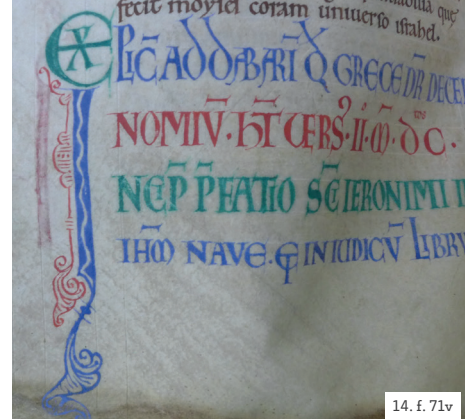 fecit moysei coram uniuerso israhel.
EXPLIC̄ ADDABARĪ Q̄ GRECE DR̄
NOMIŪ · H̄T UERS · II · M̄ · DC ·
INCĒP P̄FATIO SC̄I IERONIMI
IHM̄ NAVE · ET IN IUDICŪ LIBRV
14. f. 71v